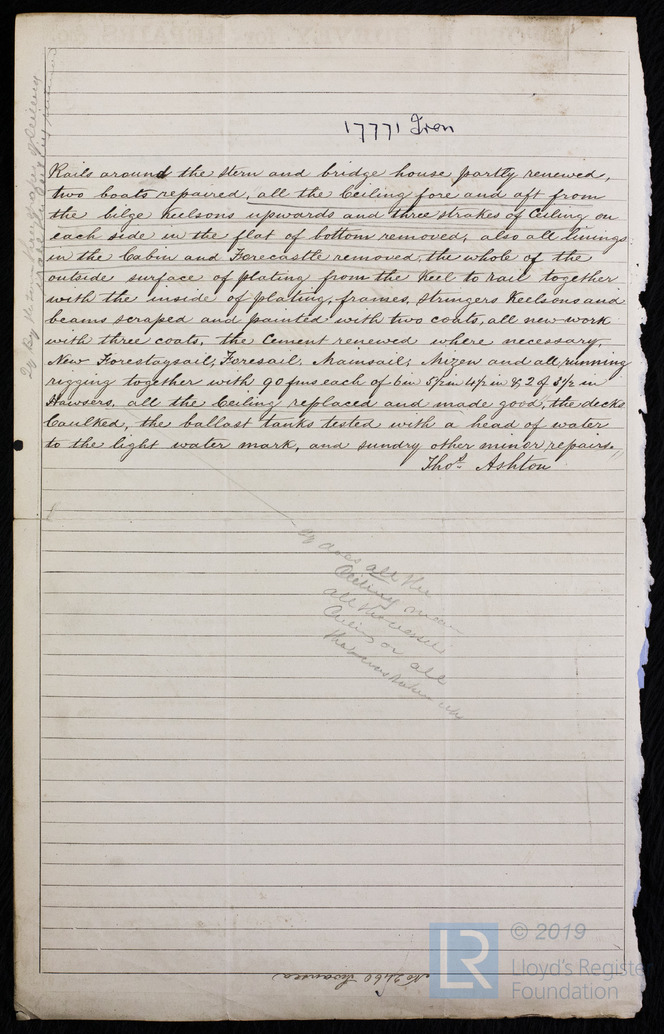 17771 Iron
Rails around the stern and bridge house partly renewed,
two boats repaired, all the Ceiling fore and aft from
the bilge Keelsons upwards and three strakes of Ceiling on
each side in the flat of bottom removed, also all linings
in the Cabin and Forecastle removed, the whole of the
outside surface of plating from the Keel to rail together
with the inside of plating, frames, stringers Keelsons and
beams scraped and painted with two coats, all new work
with three coats, the Cement renewed where necessary,
New Forestaysail, Foresail, Mainsail, Mizen and all running
rigging together with 90 fms each of 6in 5½in 4½in & 2 of 3½ in
Hawsers. all the Ceiling replaced and made good, the decks
Caulked, the ballast tanks tested with a head of water
to the light water mark, and sundry other minor repairs.
Thos. Ashton
Qy does all the
Ceiling mean
all the
Ceiling or all
the
No 2460 Swansea
© 2019
LR
Lloyd's Register
Foundation